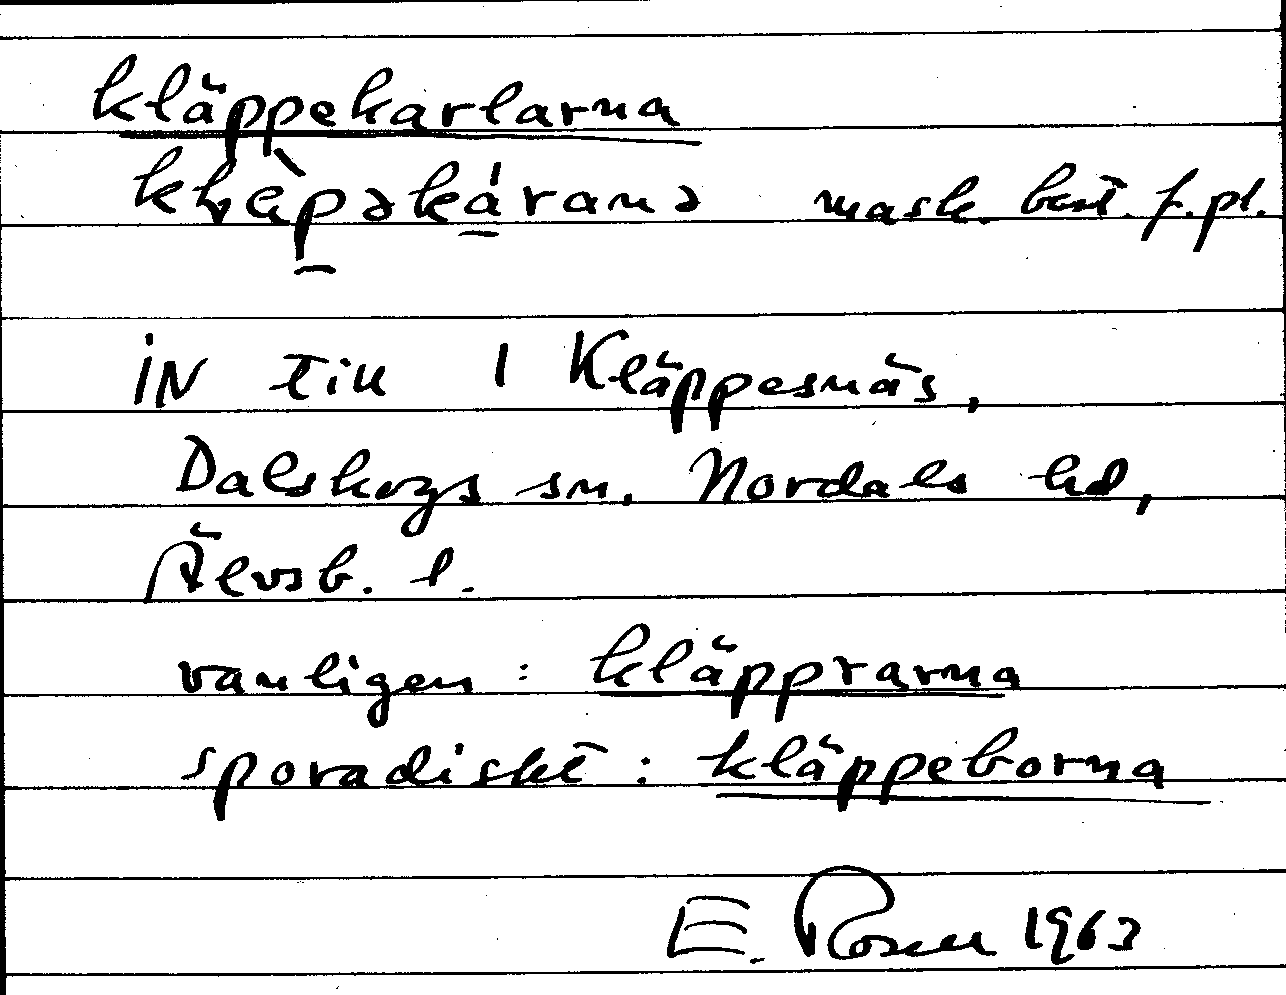 kläppekarlarna
mask. best. f. pl.
IN till 1 Kläppesnäs,
Dalskogs sn. Nordals hd,
Älvsb. l.
vanligen: kläpprarna
sporadiskt: kläppeborna
E. Rosen 1963